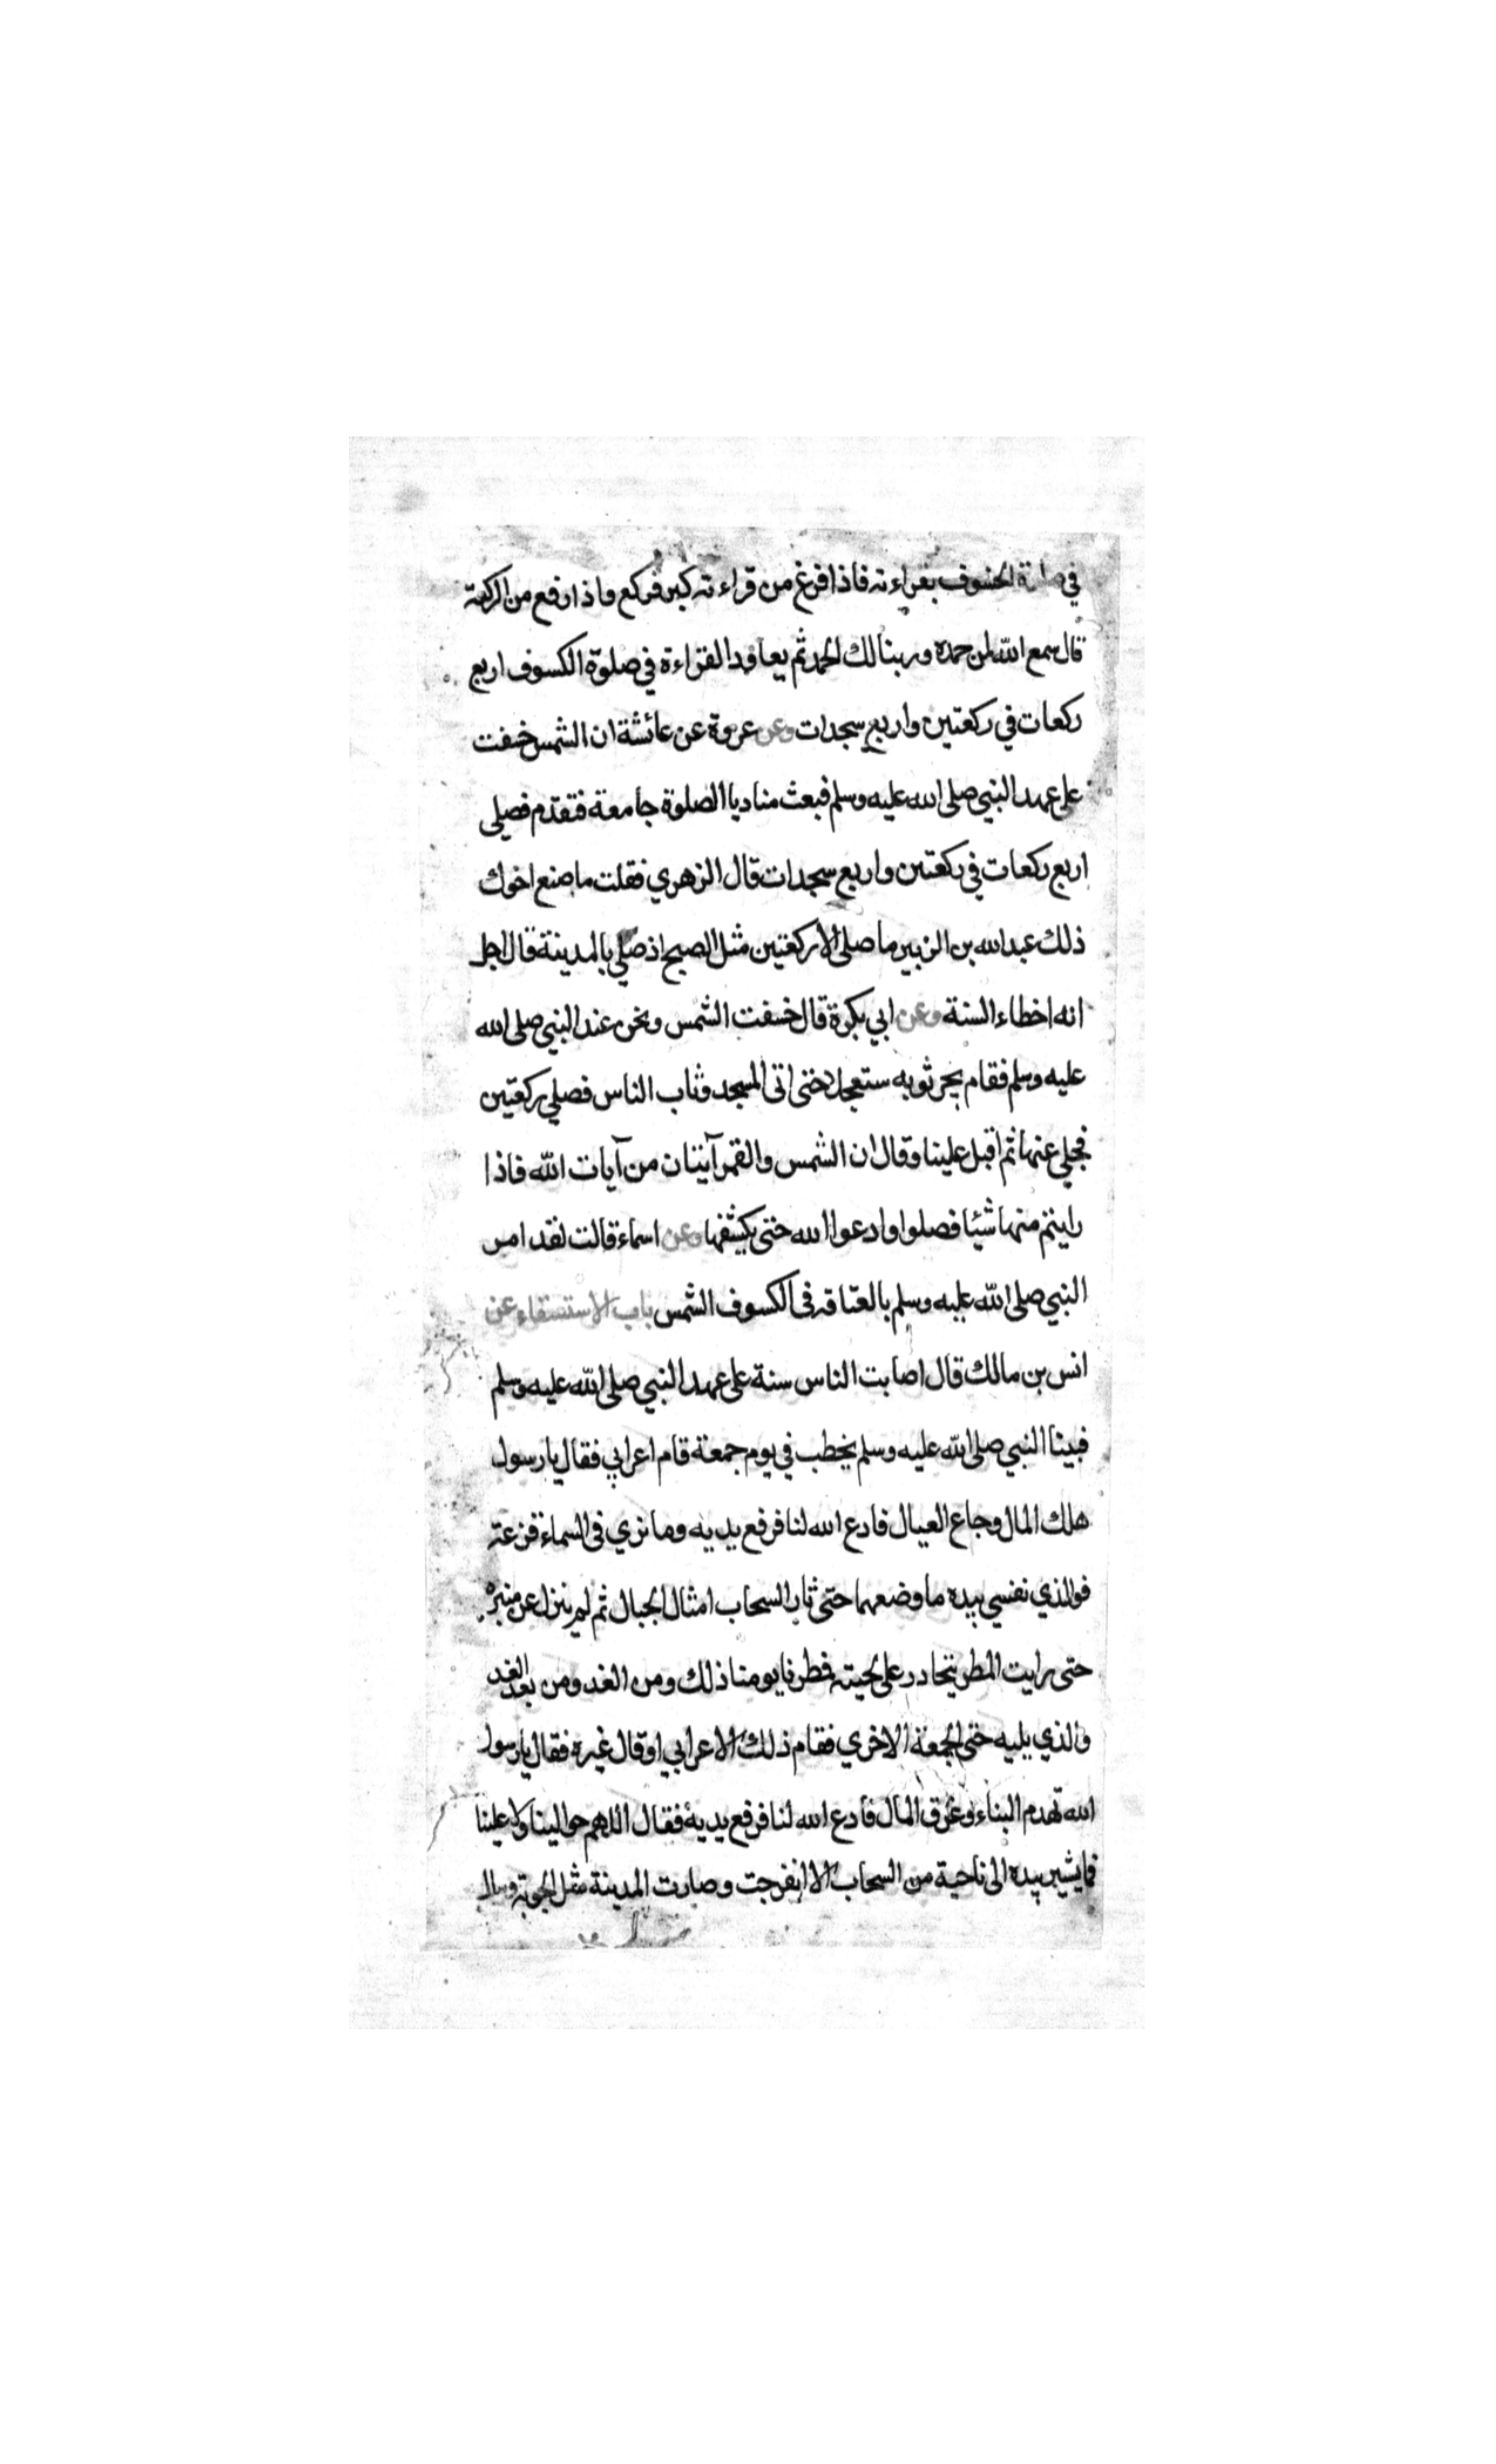 في صلوة الخسوف بقراءته فاذا فرغ من قراءته كبر فركع واذا رفع من الركعة
قال سمع الله لمن حمده وربنا لك الحمد ثم يعاود القراءة في صلوة الكسوف اربع
ركعات في ركعتين واربع سجدات وعن عروة عن عائشة ان الشمس خسفت
على عهد النبي صلى الله عليه وسلم فبعث مناديا الصلوة جامعة فتقدم فصلى
اربع ركعات في ركعتين واربع سجدات قال الزهري فقلت ما صنع اخوك
ذلك عبد الله بن الزبير ما صلى الا ركعتين مثل الصبح اذ صلي بالمدينة قال اجل
انه اخطاء السنة وعن ابي بكرة قال خسفت الشمس ونحن عند النبي صلى الله
عليه وسلم فقام يجر ثوبه ستعجلا حتى اتى المسجد وثاب الناس فصلي ركعتين
فجلي عنها ثم اقبل علينا وقال ان الشمس والقمر آيتان من آيات الله فاذا
رايتم منها شيئا فصلوا وادعوا الله حتى يكشفها وعن اسماء قالت لقد امر
النبي صلى الله عليه وسلم بالعتاقه في الكسوف الشمس باب الاستسقاء عن
انس بن مالك قال اصابت الناس سنة على عهد النبي صلى الله عليه وسلم
فبينا النبي صلى الله عليه وسلم يخطب في يوم جمعة قام اعرابي فقال يا رسول
هلك المال وجاع العيال فادع الله لنا فرفع يديه وما نري في السماء قزعة
فوالذي نفسي بيده ما وضعهما حتى ثار السحاب امثال الجبال ثم لم ينزل عن منبره
حتى رايت المطر يتحادر على لحيته فمطرنا يومنا ذلك ومن الغد ومن بعد الغد
والذي يليه حتى الجمعة الاخري فقام ذلك الاعرابي او قال غيره فقال يا رسول
الله تهدم البناء وغرق المال فادع الله لنا فرفع يديه فقال اللهم حوالينا ولا علينا
فما يشير بيده الى ناحية من السحاب الا انفرجت وصارت المدينة مثل الجوبة وسال